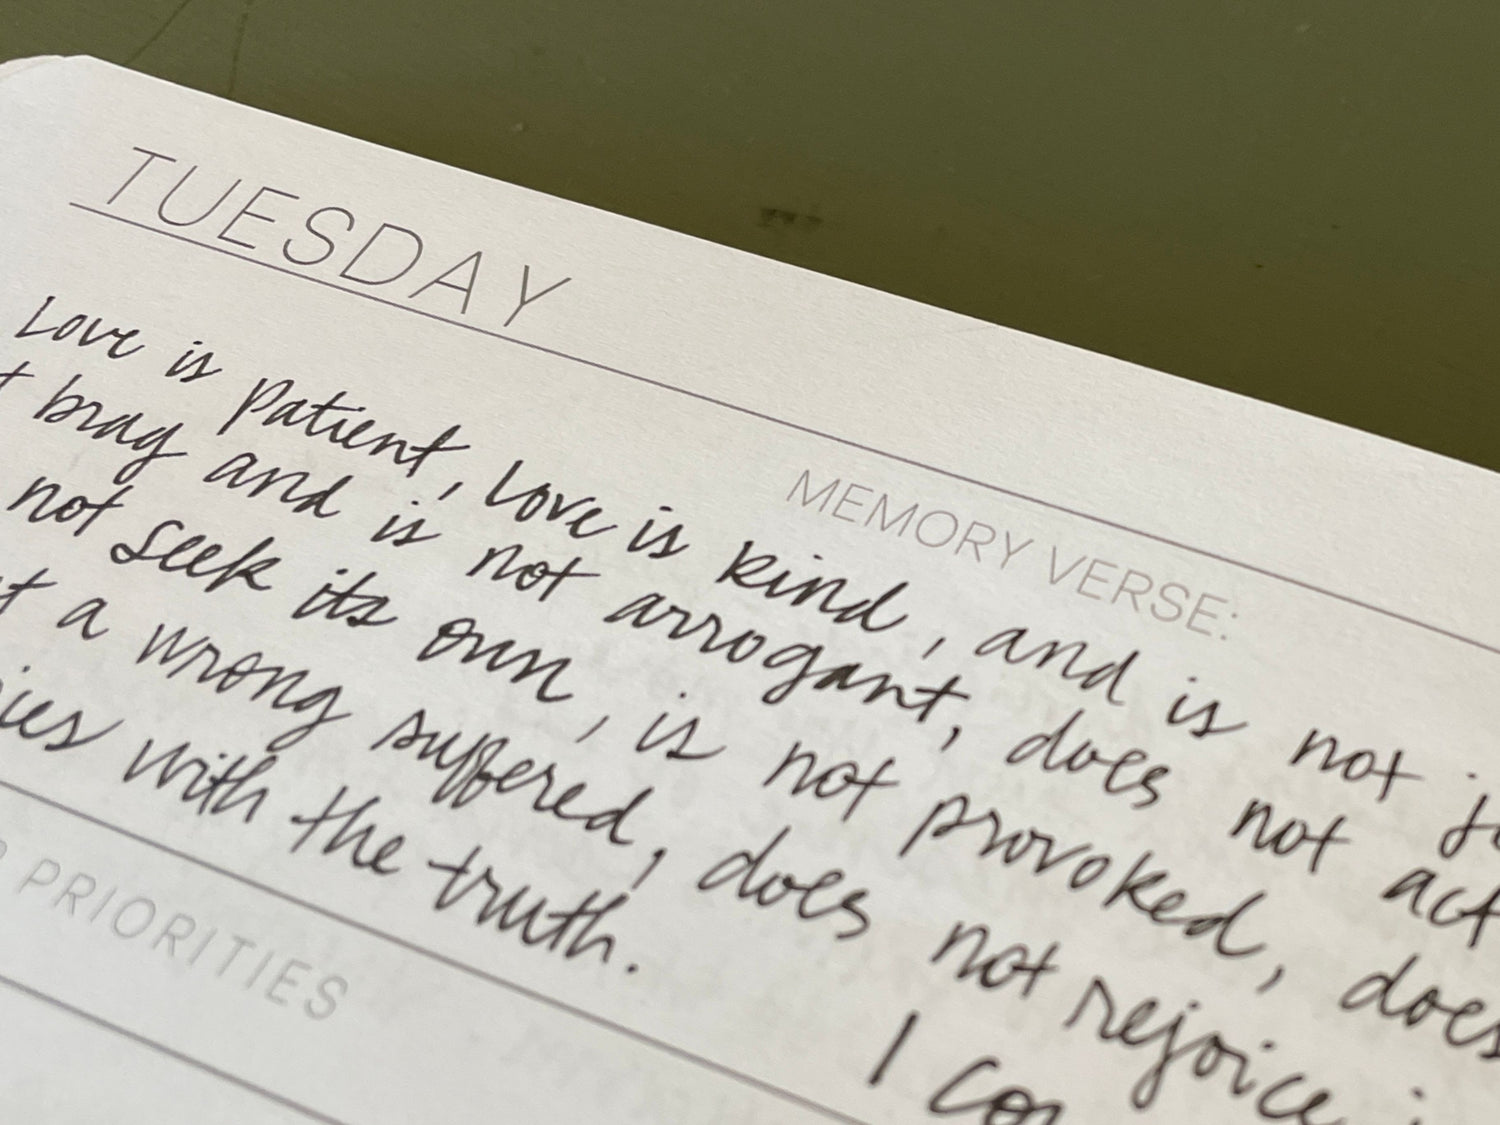 TUESDAY
MEMORY VERSE:
Love is patient, love is kind, and is not
brag and is not arrogant, does not act
not seek its own, is not provoked, does
a wrong suffered, does not rejoice
with the truth.
I Cor
PRIORITIES